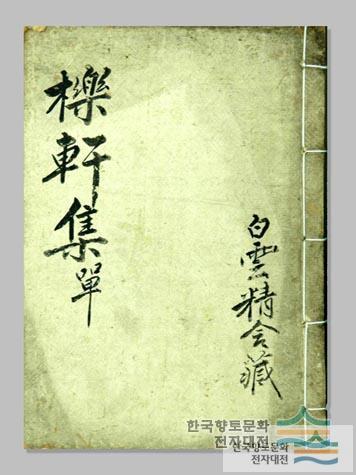 櫟軒集單
白雲精舍藏
한국향토문화
전자대전
한국향토문화
전자대전